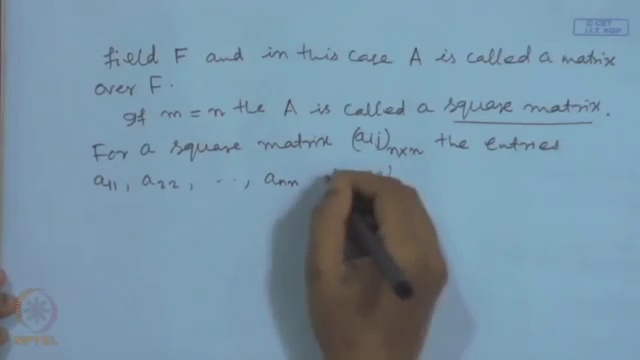 field F and in this case A is called a matrix
over F.
If m = n the A is called a square matrix.
For a square matrix (aij)n×n the entries
a11, a22, ..., ann
NPTEL